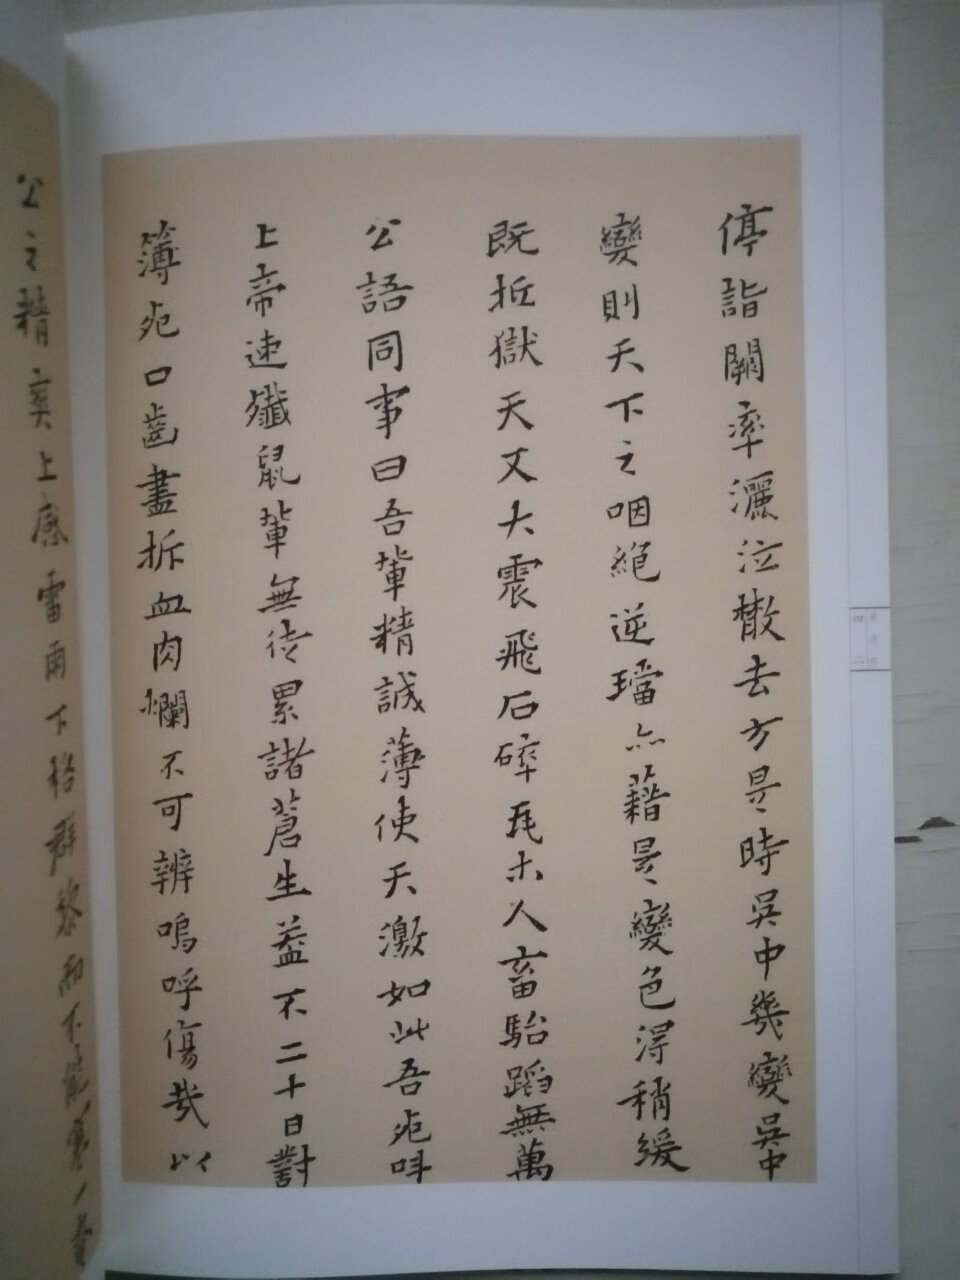 停詣闕率灑泣撤去方是時吳中幾變吳中
變則天下之咽絕逆璫亦藉是變色得稍緩
既抵獄天又大震飛石碎瓦木人畜駘蹈無萬
公語同事曰吾輩精誠薄使天激如此吾死叫
上帝速殲鼠輩無待累諸蒼生蓋不二十日對
簿死口齒盡拆血肉爛不可辨嗚呼傷哉以
公之精爽上感雷雨下格群黎而不能